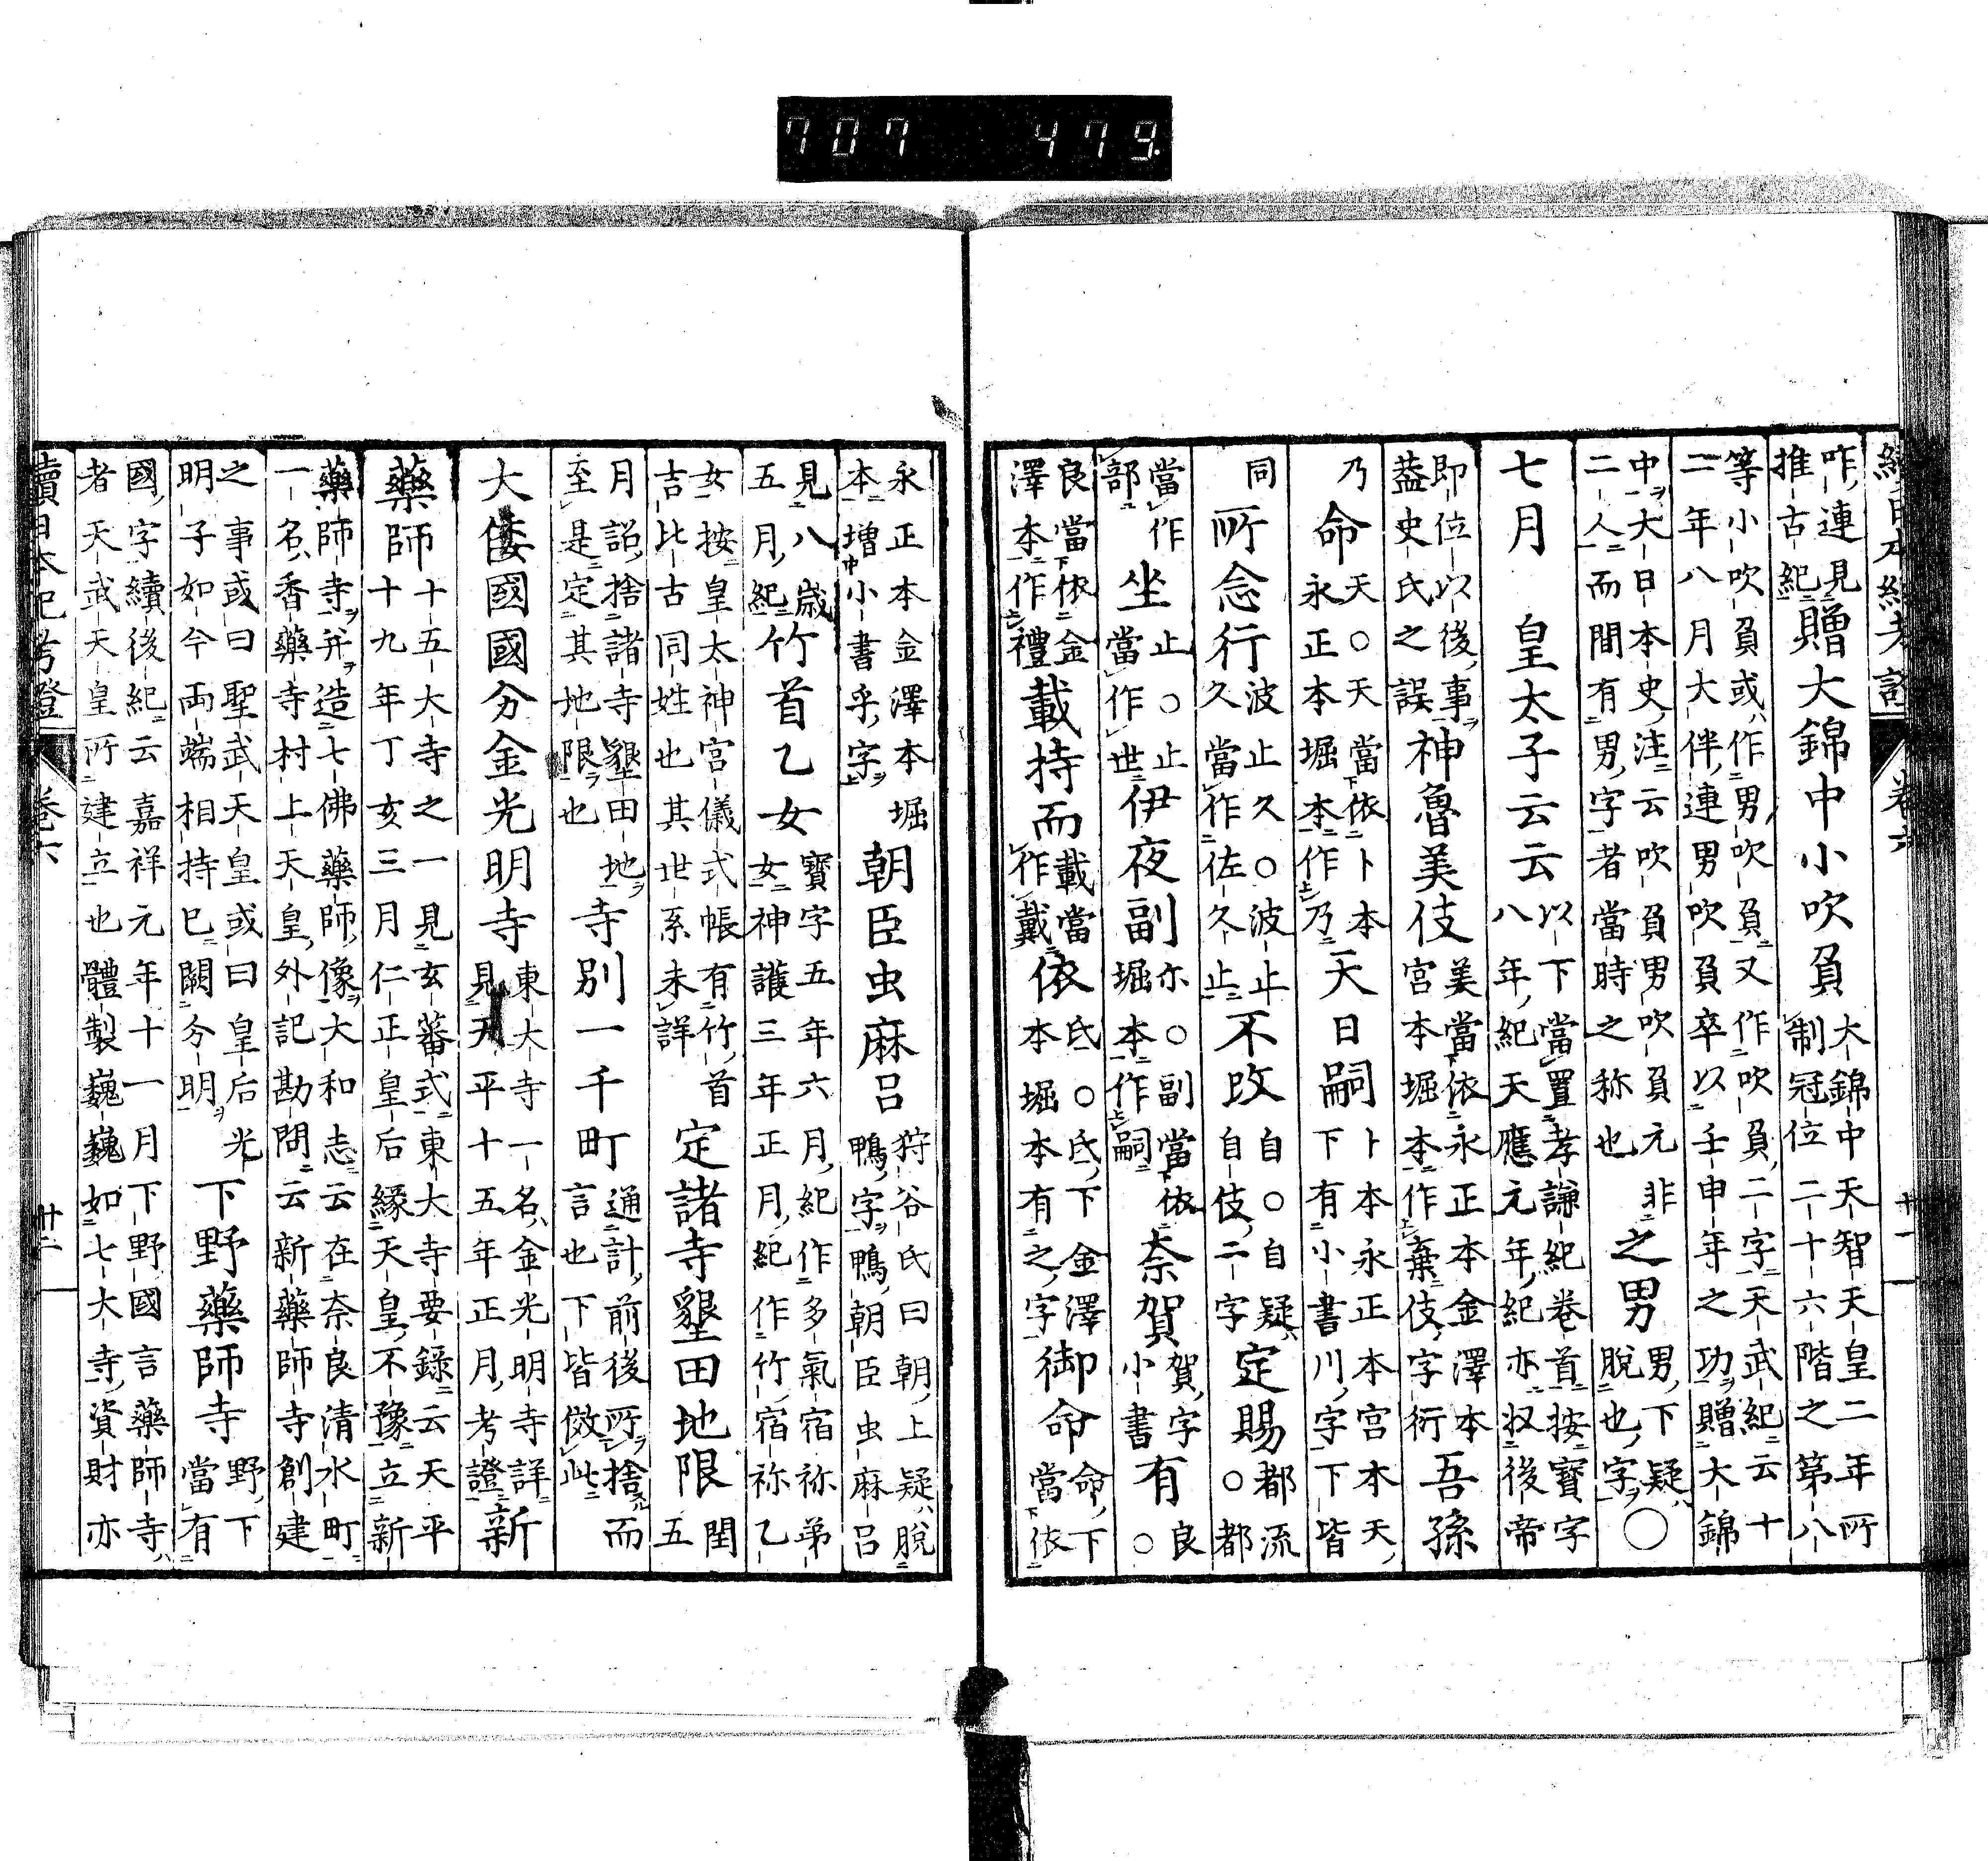 707 479
續日本紀考證 卷六 廿一
咋連見
推古紀 贈大錦中小吹負 大錦中天智天皇二年所
制冠位二十六階之第八
等小吹負或作男吹負又作吹負二字天武紀云十
二年八月大伴連男吹負卒以壬申年之功贈大錦
中大日本史注云吹負男吹負元非
二人而間有男字者當時之称也 之男 男下疑
脱也字 ○
七月 皇太子云云 以下當置孝謙紀卷首按寶字
八年紀天應元年紀亦収後帝
即位以後事
蓋史氏之誤 神魯美伎 美當依永正本金澤本
宮本堀本作棄伎字衍 吾孫
乃命 天○天當依卜本
永正本堀本作乃 天日嗣 卜本永正本宮本天
下有小書川字下皆
同 所念行 波止久○波止
久當作佐久止 不改 自○自疑
自伎二字 定賜 都流
○都
當作
部 坐 止○止
當作世 伊夜副 尓○副當依
堀本作嗣 奈賀 賀字
小書 有 良
○
良當依金
澤本作禮 載持而 載當
作戴 依 氏○氏下金澤
本堀本本有之字 御命 命下
當依
永正本金澤本堀
本増小書乎字 朝臣虫麻呂 狩谷氏曰朝上疑脱
鴨字鴨朝臣虫麻呂
見八歳
五月紀 竹首乙女 寶字五年六月紀作多氣宿祢弟
女神護三年正月紀作竹宿祢乙
女按皇太神宮儀式帳有竹首
吉比古同姓也其世系未詳 定諸寺墾田地限 閏
五
月詔捨諸寺墾田地
至是定其地限也 寺別一千町 通計前後所捨而
言也下皆倣此
大倭國國分金光明寺 東大寺一名金光明寺詳
見天平十五年正月考證 新
藥師 十五大寺之一見玄蕃式東大寺要錄云天平
十九年丁亥三月仁正皇后縁天皇不豫立新
藥師寺并造七佛藥師像大和志云在奈良清水町
一名香藥寺村上天皇外記勘問云新藥師寺創建
之事或曰聖武天皇或曰皇后光
明子如今両端相持巳闕分明 下野藥師寺 野下
當有
國字續後紀云嘉祥元年十一月下野國言藥師寺
者天武天皇所建立也體製巍巍如七大寺資財亦
續日本紀考證 卷六 廿二